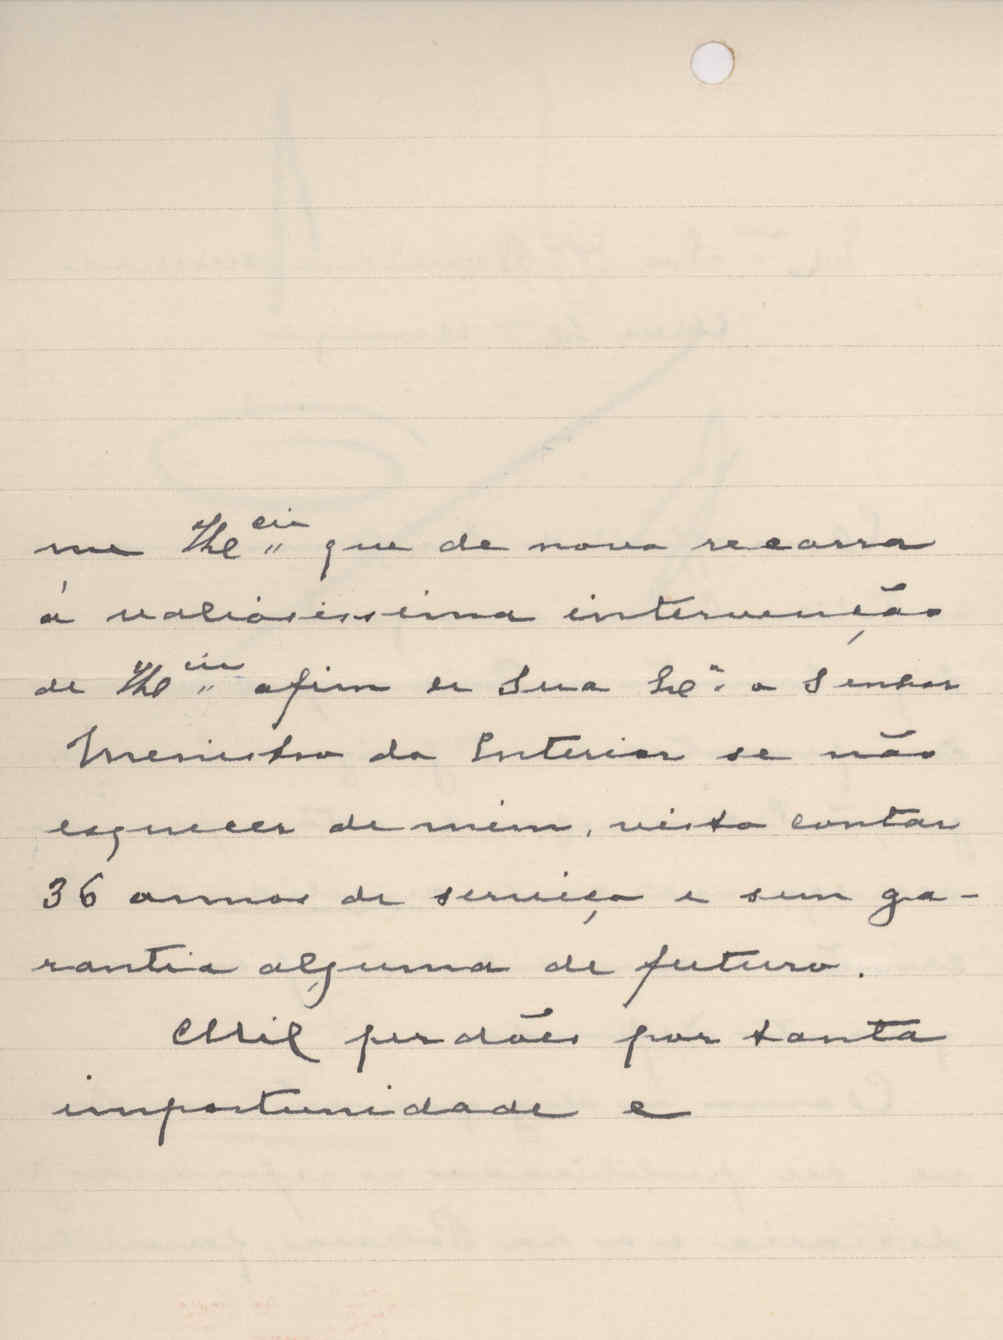 me VEx.cia que de novo recorra
á valiosissima intervenção
de VEx.cia afim de Sua Ex.a o Senhor
Menistro do Interior se não
esquecer de mim, visto contar
36 annos de serviço e sem ga-
rantia alguma de futuro.
Mil perdões por tanta
importunidade e